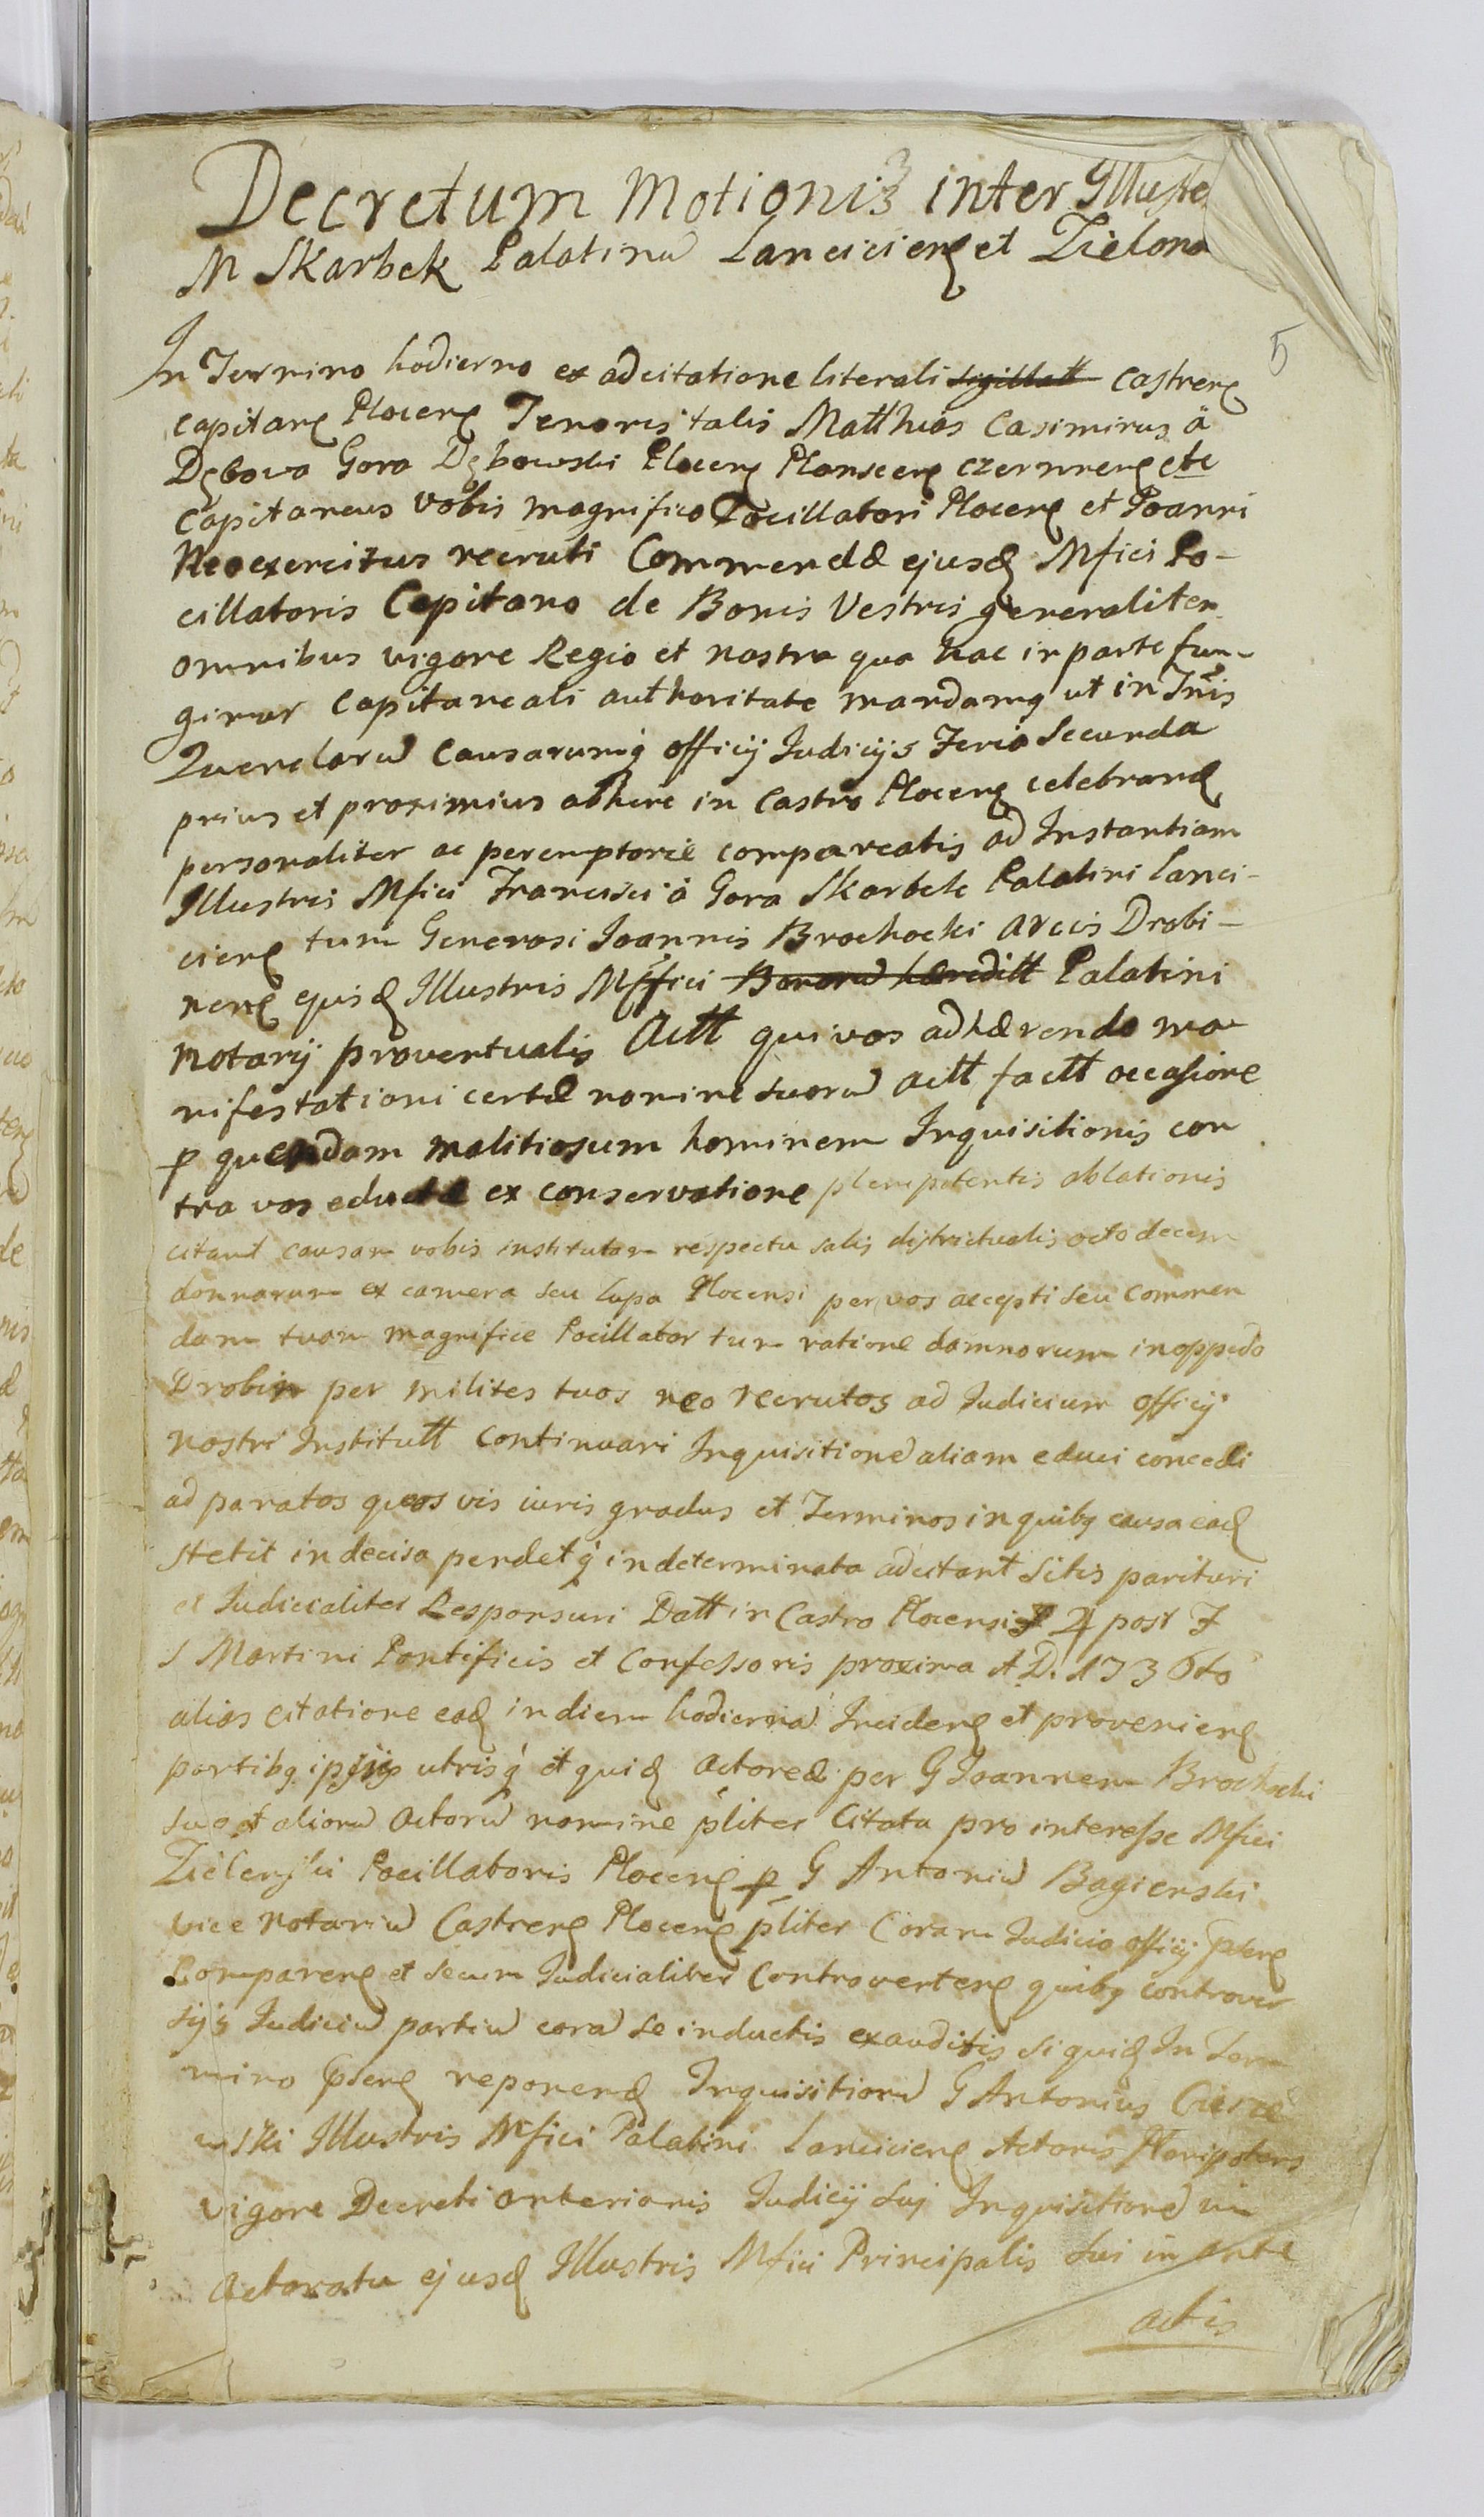 Decretum Motionis inter Illustr
M Skarbek Palatinū Lancicieñ et Zielon
5
In Termino hodierno ex adcitatione literali sigillatt Castreñ
capitanę Ploceñ Tenoris talis Matthias Casimirus à
Dębova Gora Dębowski Ploceñ Plonsceñ czernneñ etc
Capitaneus vobis magnifico Pocillatori Ploceñ et Joanni
Neoexercitus recruti Commendæ ejusd Mfici Po-
cillatoris Capitano de Bonis Vestris generaliter
omnibus vigore Regio et nostra qua hac in parte fun-
gimur Capitaneali authoritate mandamq ut in Tñis
Querelarū Causarumq́ officij Judicijs Feria Secunda
prius et proximius abhinc in Castro Ploceñ celebrand
personaliter ac peremptorie compareatis ad Instantiam
Illustris Mfici Francisci à Gora Skarbek Palatini Lanci-
cieñ tum Generosi Joannis Brochocki arcis Drobi-
neñ ejusd Illustris Mffici Bonorū hæreditt Palatini
Notarij proventualis Actt qui vos adhærendo ma
nifestationi certæ nomine suorū actt factt occasione
p quendam malitiosum hominem Inquisitionis con
tra vos eductæ ex conservatione plenipotentis ablationis
citant causam vobis institutam respectu salis districtualis octodecem
donnarum ex camera seu Cupa Plocensi per vos accepti seu Commen
dam tuam magnifice Pocillator tum ratione damnorum in oppido
Drobin per milites tuos neo recrutos ad Judicium officij
nostri Institutt Continuari Inquisitionē aliam educi concedi
ad paratos quos vis iuris gradus et Terminos in quibq causa ead
stetit indecisa pendetq́ indeterminata adcitant Sitis parituri
et Judicialiter Responsuri Datt in Castro Plocensi F 2 post F
S Martini Pontificis et Confessoris proxima A D. 1736to
alias citatione ead in diem hodiernā Incideñ et provenieñ
partibq ipsis utrisq́ et quid Actoreæ per G Joannem Brochocki
suo et aliorū Actorū nomine pliter Citata pro interesse Mfici
Zielenski Pocillatoris Ploceñ p G Antoniū Bagienski
vice Notariū Castreñ Ploceñ pliter Coram Judicio officij pseñ
Compareñ et secum Judicialiter Controverteñ quibq controver
sijs Judiciū partiū corā se inductis exauditis siquid In Ter
mino pseñ reponend Inquisitionū G Antonius
wski Illustris Mfici Palatini Lancicieñ Actoris Plenipotens
vigore Decreti anterioris Judicij sui Inquisitionē in
Actoratu ejusd Illustris Mfici Principalis sui in ante
actis